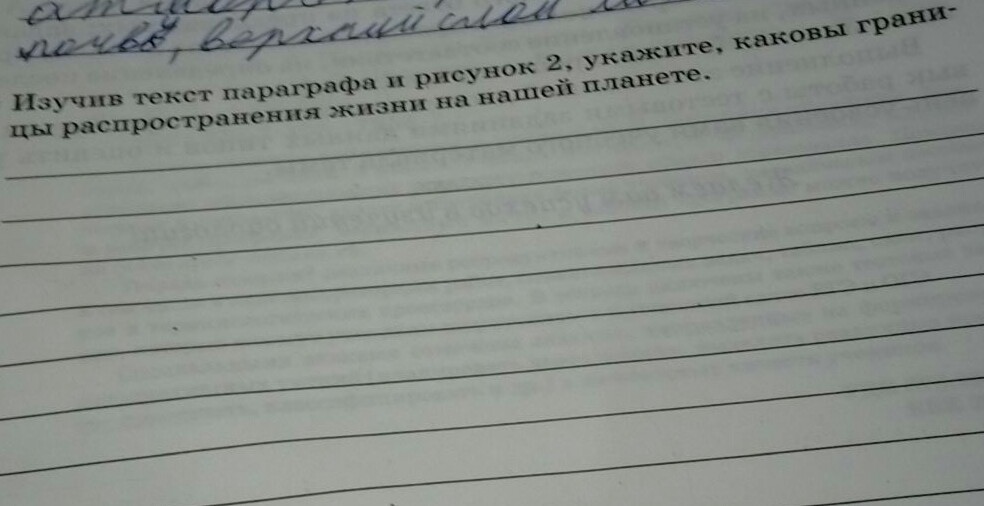 почвы, верхний слой
Изучив текст параграфа и рисунок 2, укажите, каковы грани-
цы распространения жизни на нашей планете.